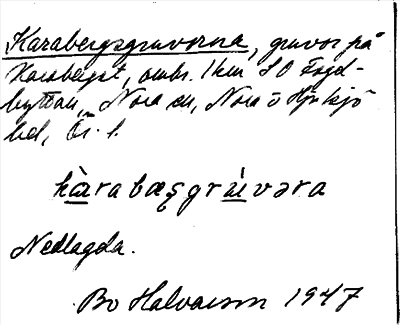 Karabergsgruvorna, gruvor på
Karaberget, omkr. 1 km SO Fogd-
hyttan, Nora sn, Nora o Hjulsjö
bel, Ör. l.
hàrabæşgrúvəra
Nedlagda.
Bo Halvarson 1947